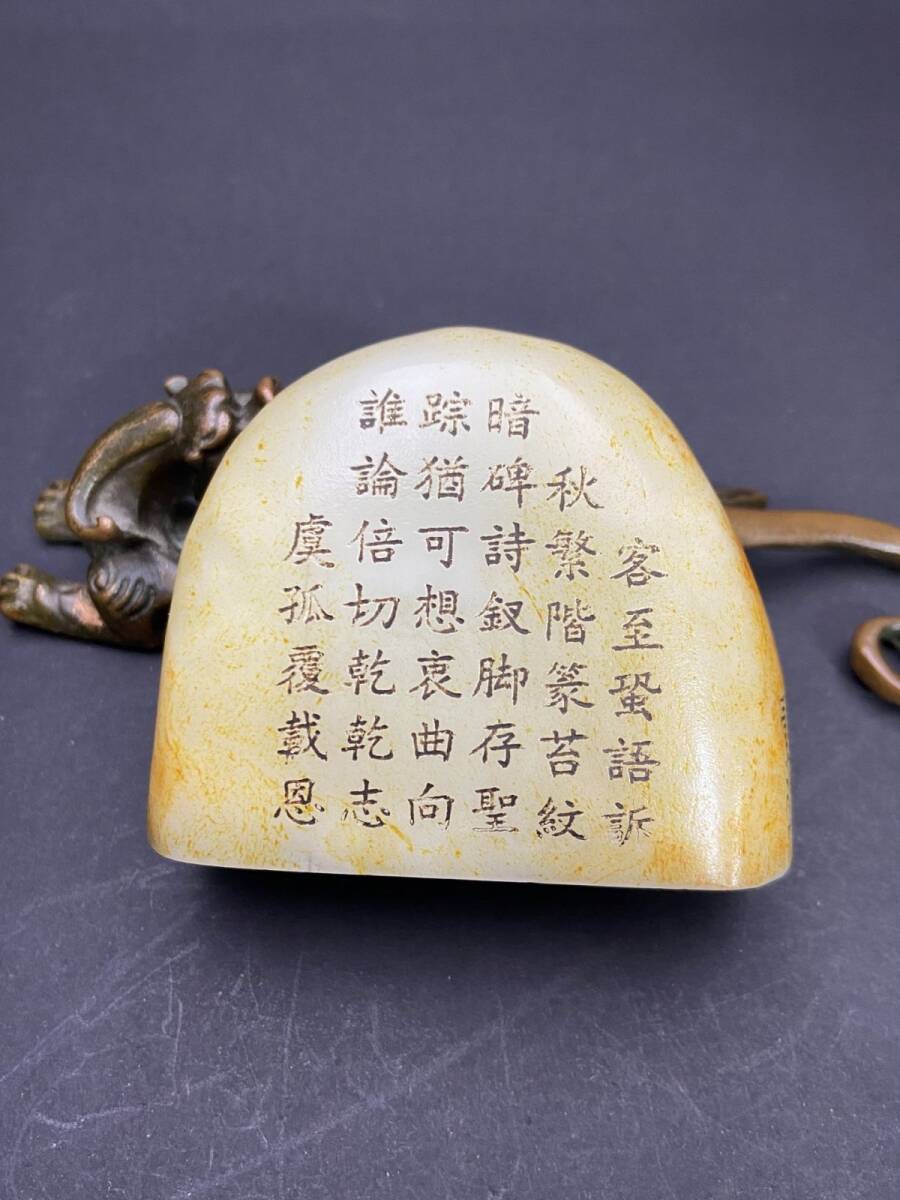 客至蛩語訴
秋繁階篆苔紋
暗碑詩釵脚存聖
踪猶可想衷曲向
誰論倍切乾乾志
虞孤覆載恩